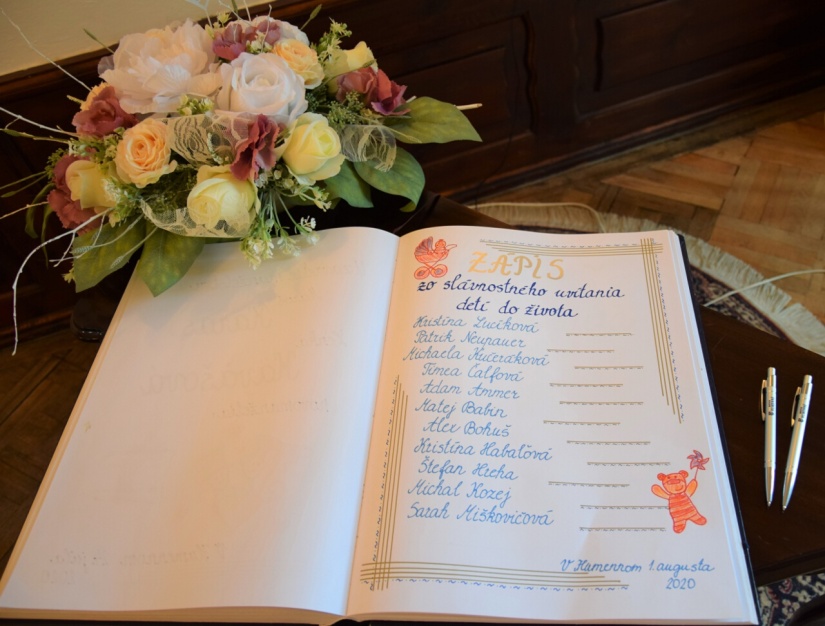 ZÁPIS
zo slávnostného uvítania
detí do života
Kristína Lucíková
Patrik Neupauer
Michaela Kučeráková
Timea Čalfová
Adam Ammer
Matej Babin
Alex Bohuš
Kristína Habaľová
Štefan Hreha
Michal Kozej
Sarah Miškovičová
V Humennom 1. augusta
2020